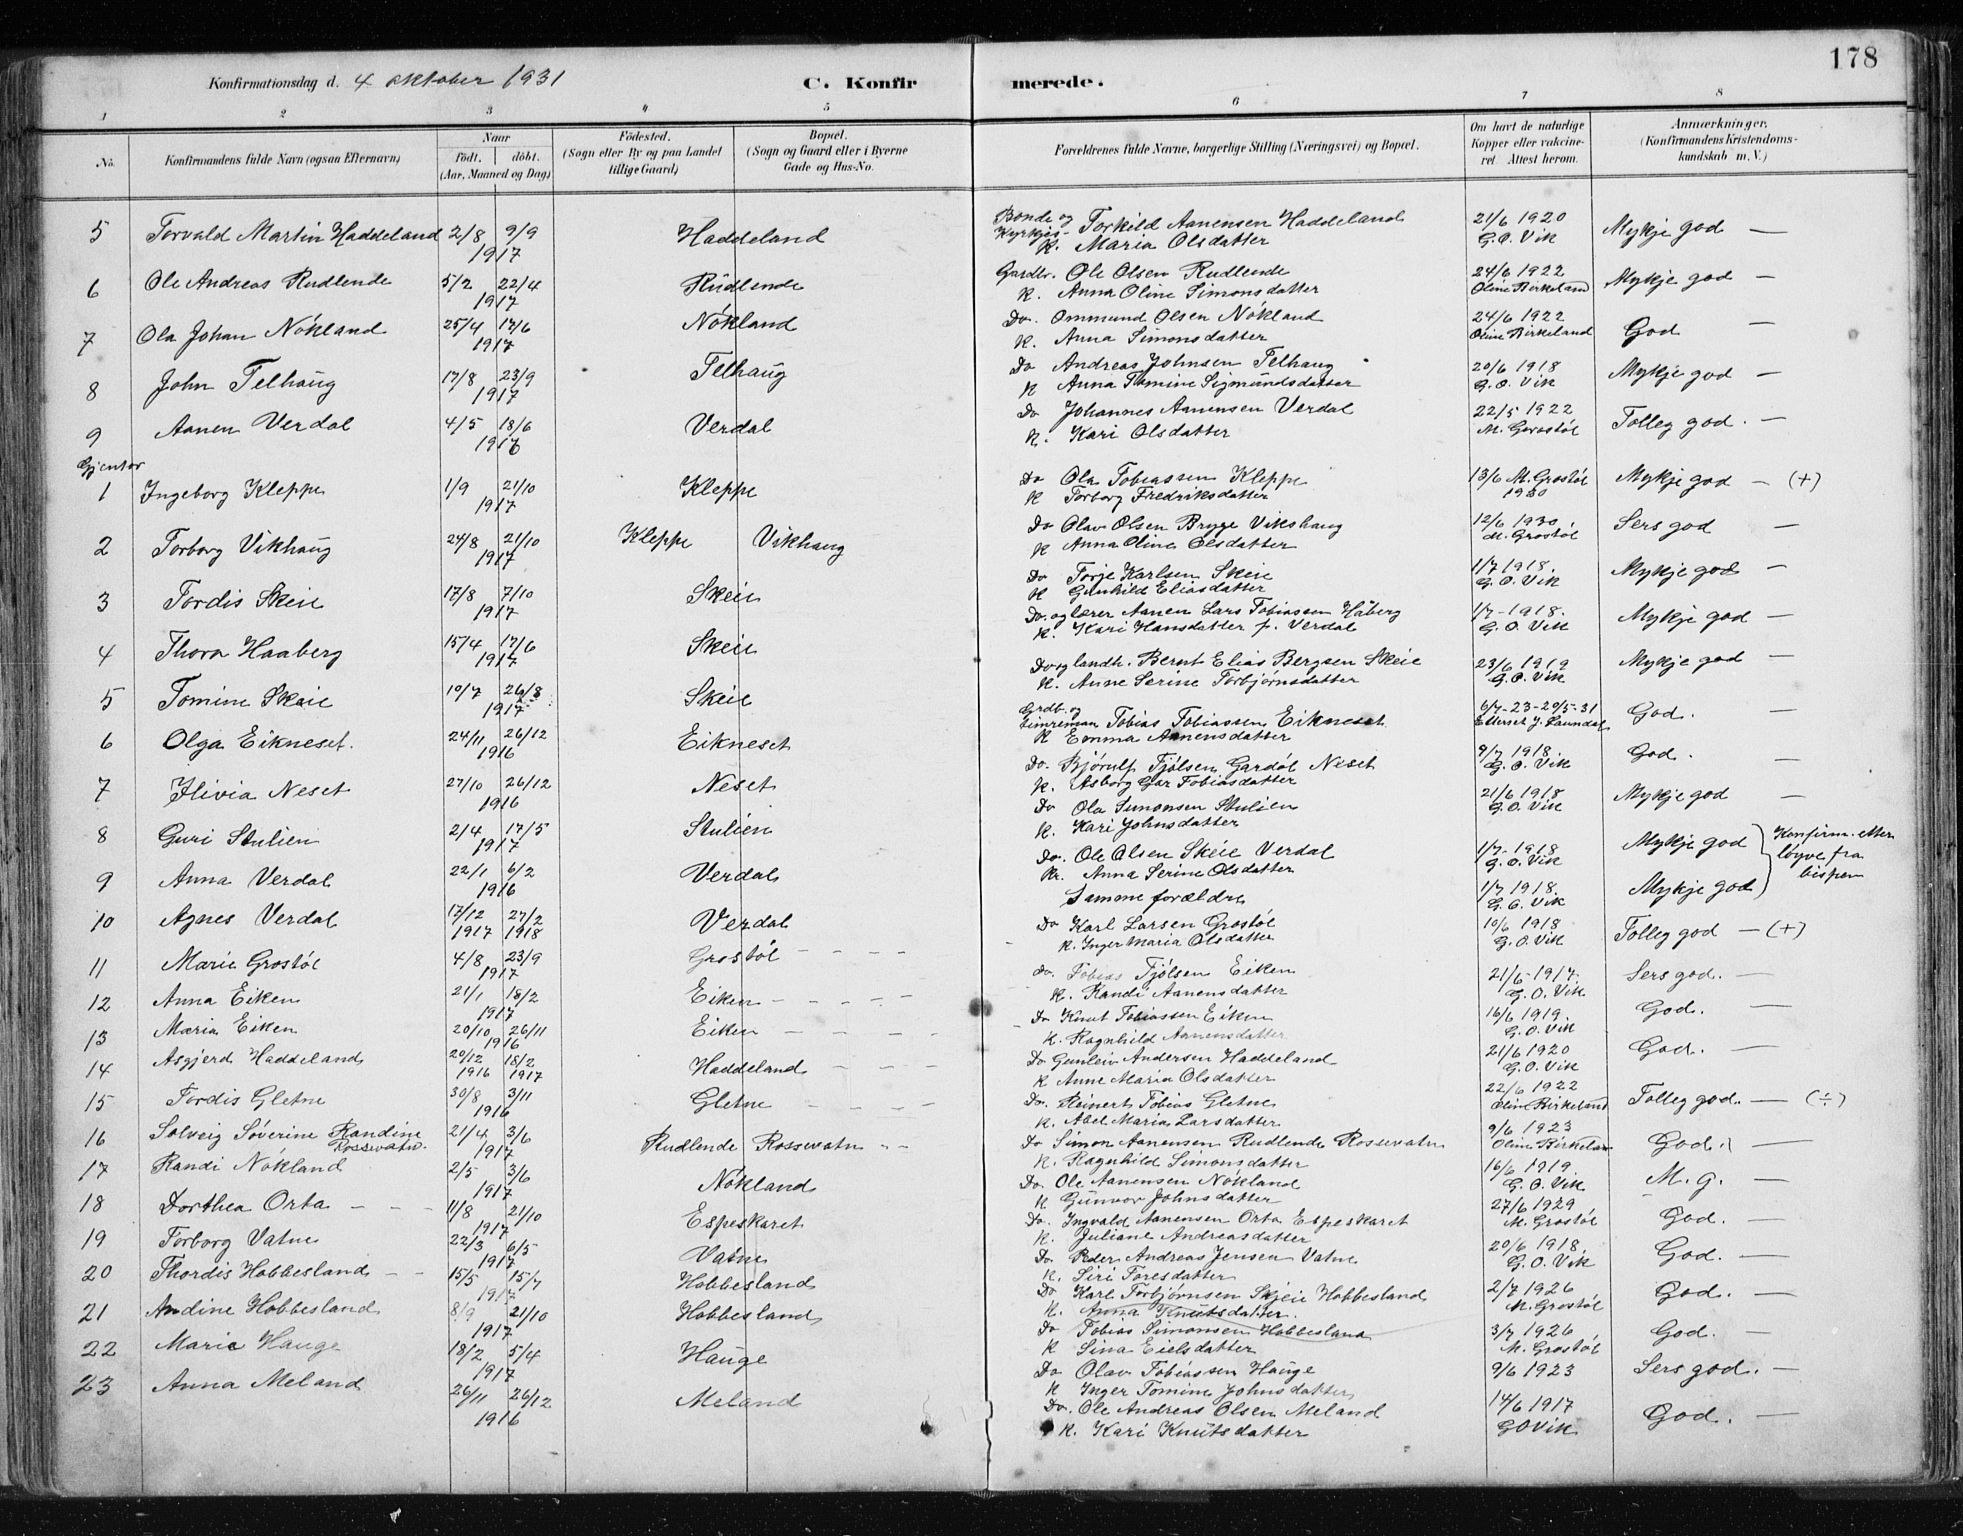 178
Konfirmationsdag d. 4 oktober 1931 C. Konfirmerede.
1 2 3 4 5 6 7 8
No. Konfirmandens fulde Navn (ogsaa Efternavn) Naar født. døbt. (Aar, Maaned og Dag) Fødested. (Sogn eller By og paa Landet tillige Gaard) Bopæl. (Sogn og Gaard eller i Byerne Gade og Hus-No. Forældrenes fulde Navne, borgerlige Stilling (Næringsvei) og Bopæl. Om havt de naturlige Kopper eller vakcineret. Attest herom. Anmærkninger. (Konfirmandens Kristendomskundskab m. V.)
5 Torvald Martin Haddeland 2/8 9/9 1917 Haddeland Bonde og Kyrkjes- Torkild Aanensen Haddeland K. Maria Olsdatter 21/6 1920 G.O. Vik Mykje god —
6 Ole Andreas Rudlende 5/2 22/4 1917 Rudlende Gardbr. Ole Olsen Rudlende K. Anna Oline Simonsdatter 24/6 1922 Oline Birkeland Mykje god —
7 Ola Johan Nökland 25/4 17/6 1917 Nökland Do. Ommund Olsen Nökland K. Anna Simonsdatter 24/6 1922 Oline Birkeland God —
8 John Telhaug 17/8 23/9 1917 Telhaug Do Andreas Johnsen Telhaug K Anna Tomine Sigmundsdatter 20/6 1918 G.O. Vik Mykje god —
9 Aanen Verdal 4/5 18/6 1916 Verdal Do Johannes Aanensen Verdal K. Kari Olsdatter 22/5 1922 M. Grostöl Tolleg god. —
Gjentor
1 Ingeborg Kleppe 1/9 21/10 1917 Kleppe Do Ola Tobiassen Kleppe K Torborg Fredriksdatter 13/6 M. Grostöl 1930 Mykje god — (+)
2 Torborg Vikhaug 24/8 21/10 1917 Kleppe Vikhaug Do Olav Olsen Bryge Vikshaug K Anna Oline Olsdatter 12/6 1930. M. Grostöl Sers god —
3 Tordis Skeie 17/8 7/10 1917 Skeie Do Torje Karlsen Skeie K Gunhild Eliasdatter 1/7 1918. G.O. Vik Mykje god —
4 Thora Haaberg 15/4 17/6 1917 Skeie Do. og lærer Aanen Lars Tobiassen Håberg K. Kari Hansdatter f. Verdal 1/7-1918. G.O. Vik Mykje god —
5 Tomine Skeie 10/7 26/8 1917 Skeie Do og landh. Bernt Elias Bergsen Skeie K. Anne Serine Torbjørnsdatter 23/6 1919 G.O. Vik Mykje god —
6 Olga Eikneset. 24/11 26/12 1916 Eikneset Grdb. og timreman Tobias Tobiassen Eikneset K Emma Aanensdatter 6/7-23-20/5-31 God. —
7 Neset 27/10 26/12 1916 Neset Do. Bjørulf Tjölsen Gardöl Neset K. Asborg Tobiasdatter 9/7 1918. G.O. Vik God. —
8 Guri Stulien 2/4 17/5 1917 Stulien Do Ola Simonsen Stulien K. Kari Johnsdatter 21/6 1918 G.O. Vik Mykje god —
9 Anna Verdal 22/1 6/2 1916 Verdal Do. Ole Olsen Skeie Verdal K. Anna Serine Olsdatter 1/7-1918 G.O. Vik Mykje god Konfirm. etter løyve fra bispen
10 Agnes Verdal 17/12 1917 27/2 1918 Verdal Samme forældre 1/7 1918. G.O. Vik Mykje god
11 Marie Grostöl 4/8 23/9 1917 Grostöl Do Karl Larsen Grostöl K. Inger Maria Olsdatter 10/6 1918 G.O. Vik Tolleg god — (+)
12 Anna Eiken 21/1 18/2 1917 Eiken Do. Tobias Tjölsen Eiken K. Randi Aanensdatter 21/6-1917. G.O. Vik Sers god. —
13 Maria Eiken 20/10 26/11 1916 Eiken Do Knut Tobiassen Eiken K. Ragnhild Aanensdatter 16/6 1919. G.O. Vik God. —
14 Asgjerd Haddeland 20/12 1916 18/2 1917 Haddeland Do Gunleiv Andersen Haddeland K Anne Maria Olsdatter 21/6 1920 G.O. Vik God. —
15 Tordis Gletne 30/8 3/11 1916 Gletne Do. Reinert Tobias Gletne K. Abel Maria Larsdatter 22/6 1922 Oline Birkeland Tolleg god. — (÷)
16 Solveig Söverine Randine Rossevatn. 21/4 3/6 1917 Rudlende Rossevatn Do Simon Aanensen Rudlende Rossevatn K. Ragnhild Simonsdatter 9/6 1923 Oline Birkeland God. —
17 Randi Nökland 2/5 3/6 1917 Nökland Do. Ole Aanensen Nökland K Gunvor Johnsdatter 16/6 1919 G.O. Vik M. g. —
18 Dorthea Orta 11/8 21/10 1917 Espeskaret Do. Ingvald Aanensen Orta Espeskaret K. Juliane Andreasdatter 27/6 1929 M. Grostöl God. —
19 Torborg Vatne 22/3 6/5 1917 Vatne Do Peder Andreas Jensen Vatne K. Siri Toresdatter 20/6 1918. G.O. Vik God. —
20 Thordis Hobbesland 15/5 15/7 1917 Hobbesland Do Karl Torbjørnsen Skjeie Hobbesland K. Anna Knutsdatter. 2/7 1926 M. Grostöl God. —
21 Andine Hobbesland 8/9 21/10 1917 Hobbesland Do Tobias Simonsen Hobbesland K Sina Eielsdatter 3/7 1926 M. Grostöl God. —
22 Marie Hauge 18/2 5/4 1917 Hauge Do Olav Tobiassen Hauge K Inger Tomine Johnsdatter 9/6 1923 Sers god. —
23 Anna Meland 26/11 26/12 1916 Meland Do. Ole Andreas Olsen Meland K. Kari Knutsdatter 14/6 1917 GOVik God. —